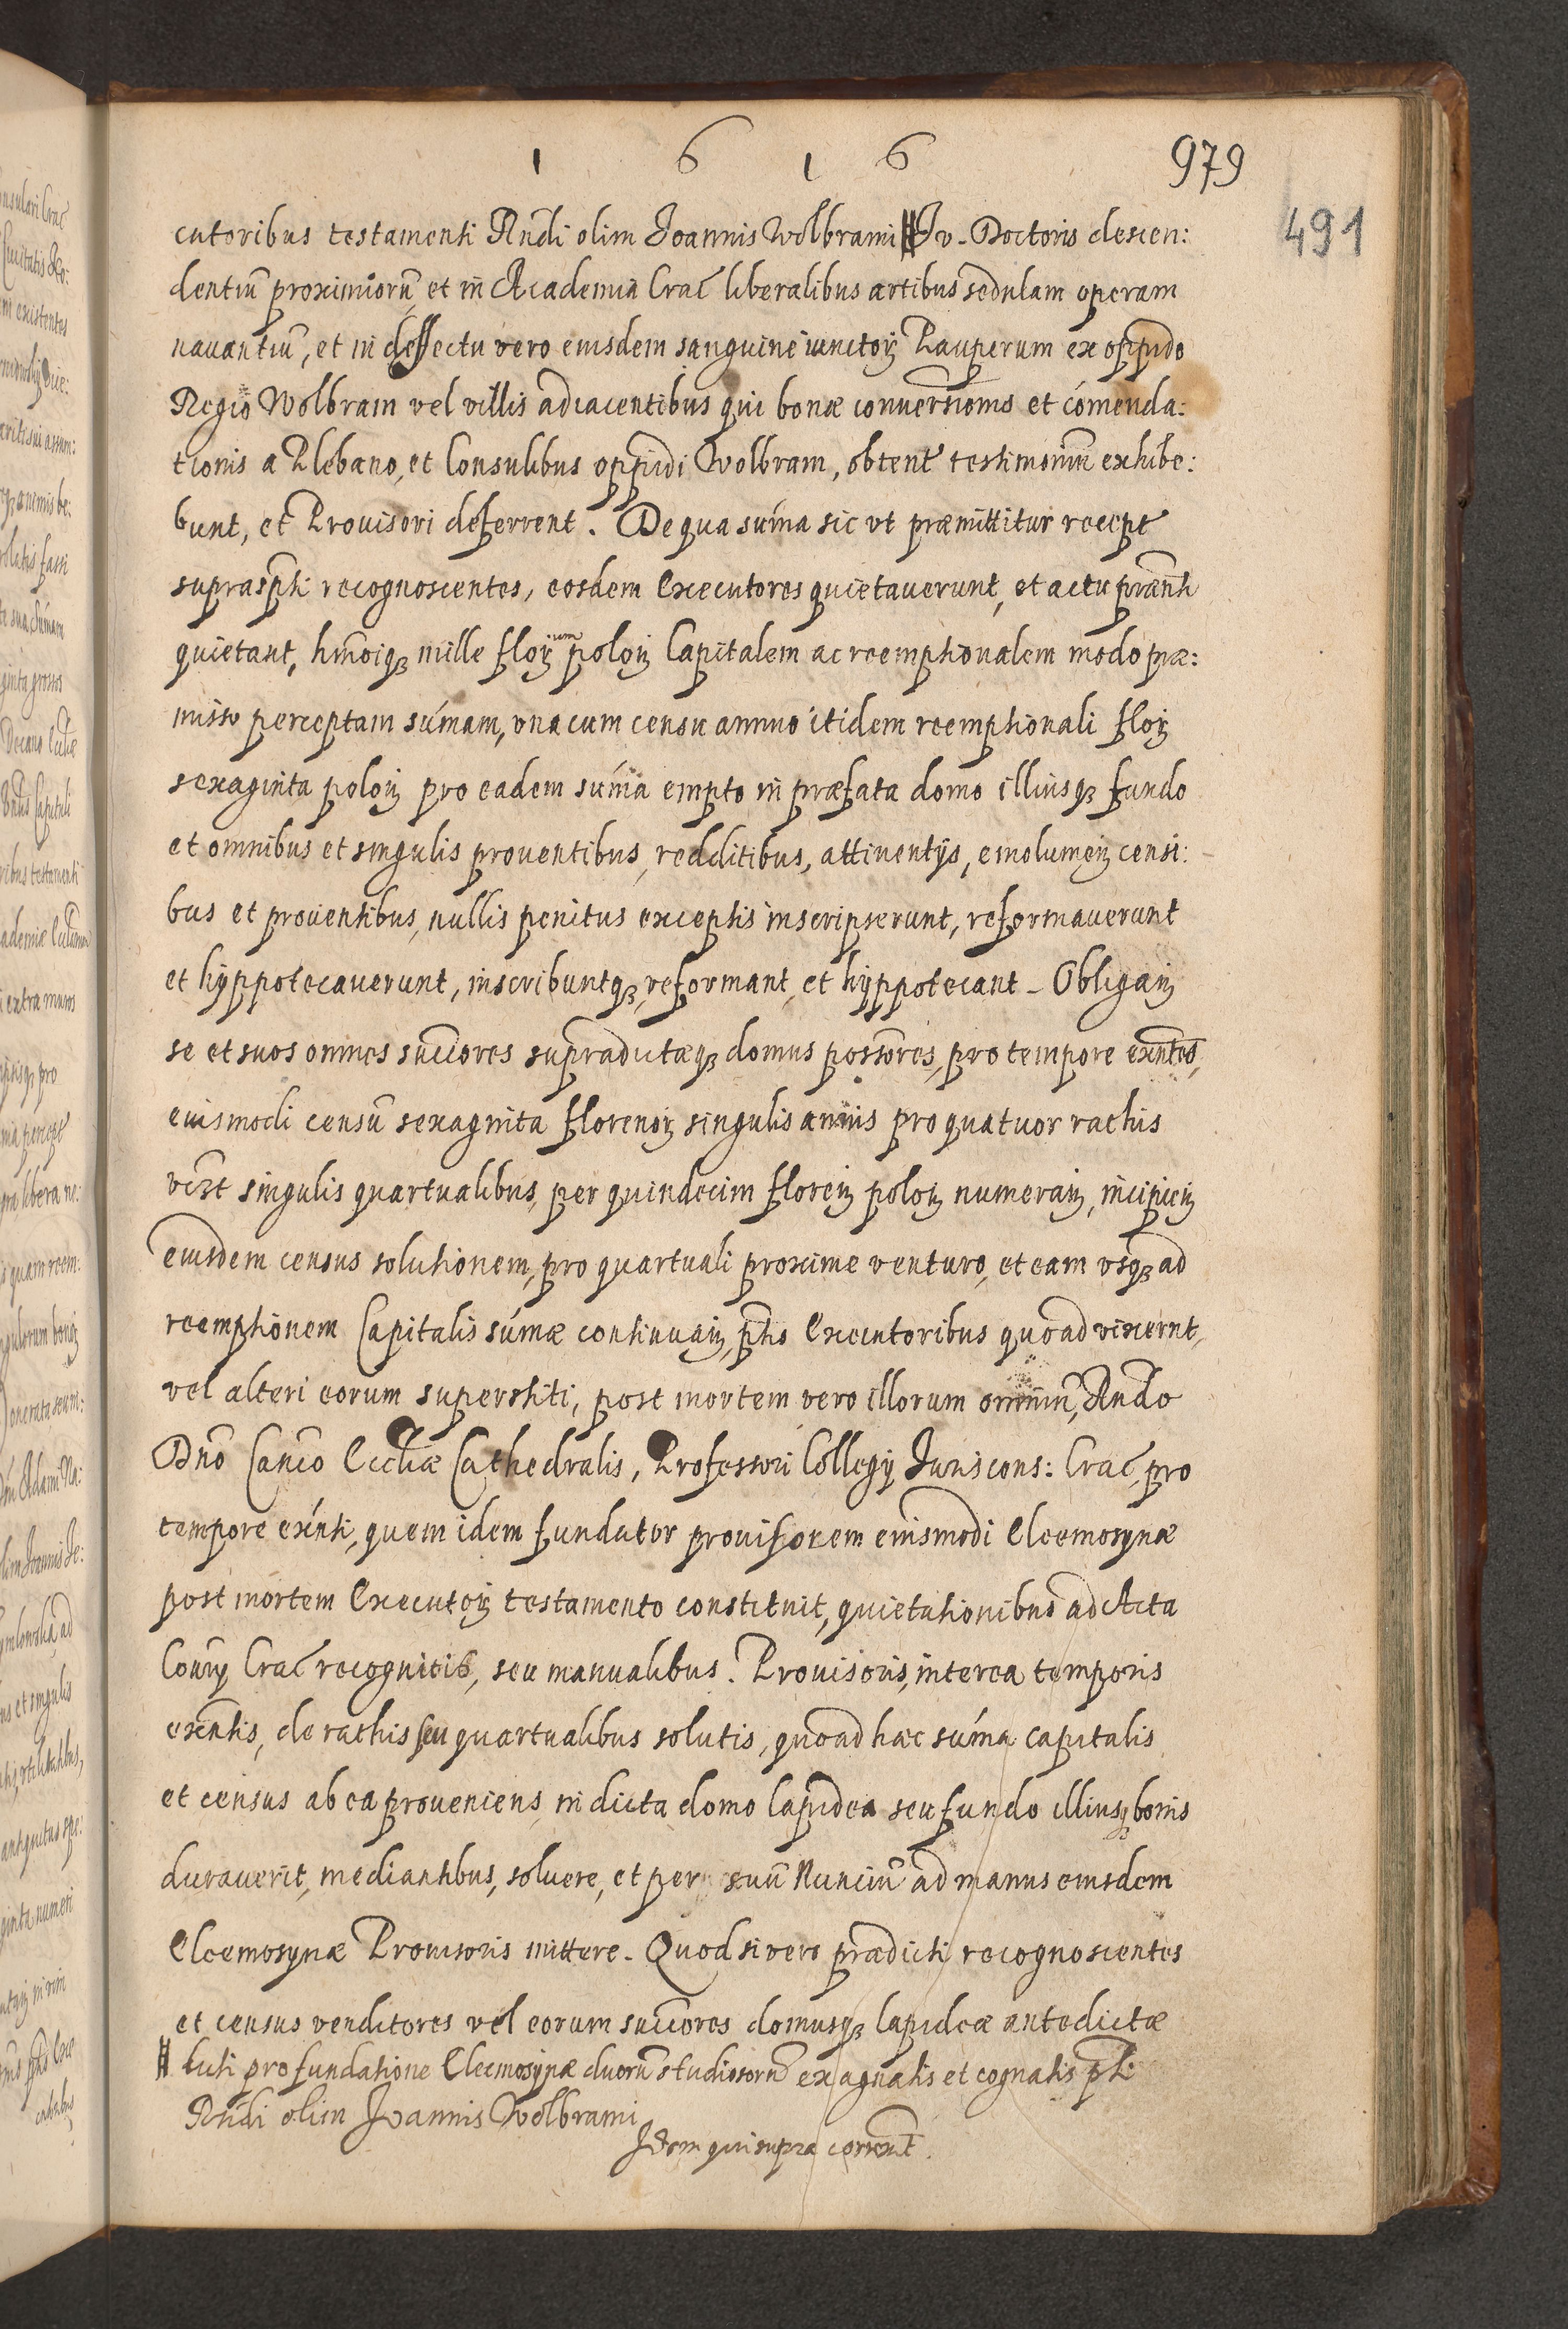 1 6 1 6 979
491
cutoribus testamenti Rndi olim Joannis Wolbrami # Jv. Doctoris descen:
dentiũ proximiorũ et in Academia Crac̃ liberalibus artibus sedulam operam
nauantiũ, et in deffectu vero eiusdem sanguine iunctoꝝ Pauperum ex oppido
Regio Wolbram vel villis adiacentibus qui bonæ conuersionis et com̃enda:
tionis a Plebano, et Consulibus oppidi Wolbram, obtent testimoniũ exhibe:
bunt, et Prouisori deferrent. De qua sum̃a sic vt præmittitur recept
suprasp̃ti recognoscentes, eosdem Executores quietauerunt, et actu præn̄ti
quietant, hm̃oiqꝫ mille floꝝum poloꝝ Capitalem ac reemptionalem modo præ:
misso perceptam sum̃am, vna cum censu annuo itidem reemptionali floꝝ
sexaginta poloꝝ pro eadem sum̃a empto in præfata domo illiusqꝫ fundo
et omnibus et singulis prouentibus, redditibus, attinentijs, emolumeꝝ censi:
bus et prouentibus, nullis penitus exceptis inscripserunt, reformauerunt
et hyppotecauerunt, inscribuntqꝫ, reformant, et hyppotecant. Obligaꝝ
se et suos omnes succores supradictæqꝫ domus possores, pro tempore exn̄tes,
eiusmodi censũ sexaginta florenoꝝ singulis annis pro quatuor rathis
vizt singulis quartualibus, per quindecim floreꝝ poloꝝ numeraꝝ, incipieꝝ
eiusdem census solutionem, pro quartuali proxime venturo, et eam vsqꝫ ad
reemptionem Capitalis sum̃æ continuaꝝ, p̃tis Executoribus quoad vixernt,
vel alteri eorum superstiti, post mortem vero illorum omniũ, Rndo
Dnõ Canc̃o Eccliæ Cathedralis, Professori Collegij Juriscons: Crac̃, pro
tempore exn̄ti, quem idem fundator prouisorem eiusmodi Eleemosynæ
post mortem Executoꝝ testamento constituit, quietationibus ad Acta
Consrꝫ Crac̃ recognitis, seu manualibus. Prouisoris, interea temporis
exn̄tis, de rathis seu quartualibus solutis, quoad hæc sum̃a capitalis
et census ab ea proueniens, in dicta domo lapidea seu fundo illiusqꝫ bonis
durauerit, mediantibus, soluere, et per suũ Nunciũ ad manus eiusdem
Eleemosynæ Prouisoris mittere. Quod si vero prædicti recognoscentes
et census venditores vel eorum succores domusqꝫ lapideæ antedictæ
# luti pro fundatione Eleemosynæ duorũ studiosorũ ex agnatis et cognatis p̃ti
Rndi olim Joannis Wolbrami
Idem qui supra correxit.